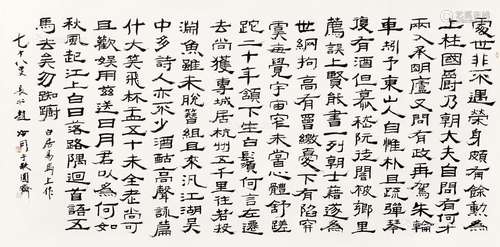 處世非不遇榮身頗有餘勳為
上柱國爵乃朝大夫自問有何才
兩入承明廬又問有何政再駕朱輪
車矧予東山人自惟朴且疏彈琴
復有酒但慕嵇阮徒闇被鄉里
薦誤上賢能書一列朝士籍遂為
世網拘高有罾繳憂下有陷穽
虞每覺宇宙窄未嘗心體舒蹉
跎二十年頷下生白鬚何言左遷
去尚獲專城居杭州五千里往若投
淵魚雖未脫簪組且來汎江湖吳
中多詩人亦不少酒酤高聲詠篇
什大笑飛杯盂五十未全老尚可
且歡娛用茲送日月君以為何如
秋風起江上白日落路隅迴首語五
馬去矣勿踟躕 白居易馬上作
七十八叟 長公趙